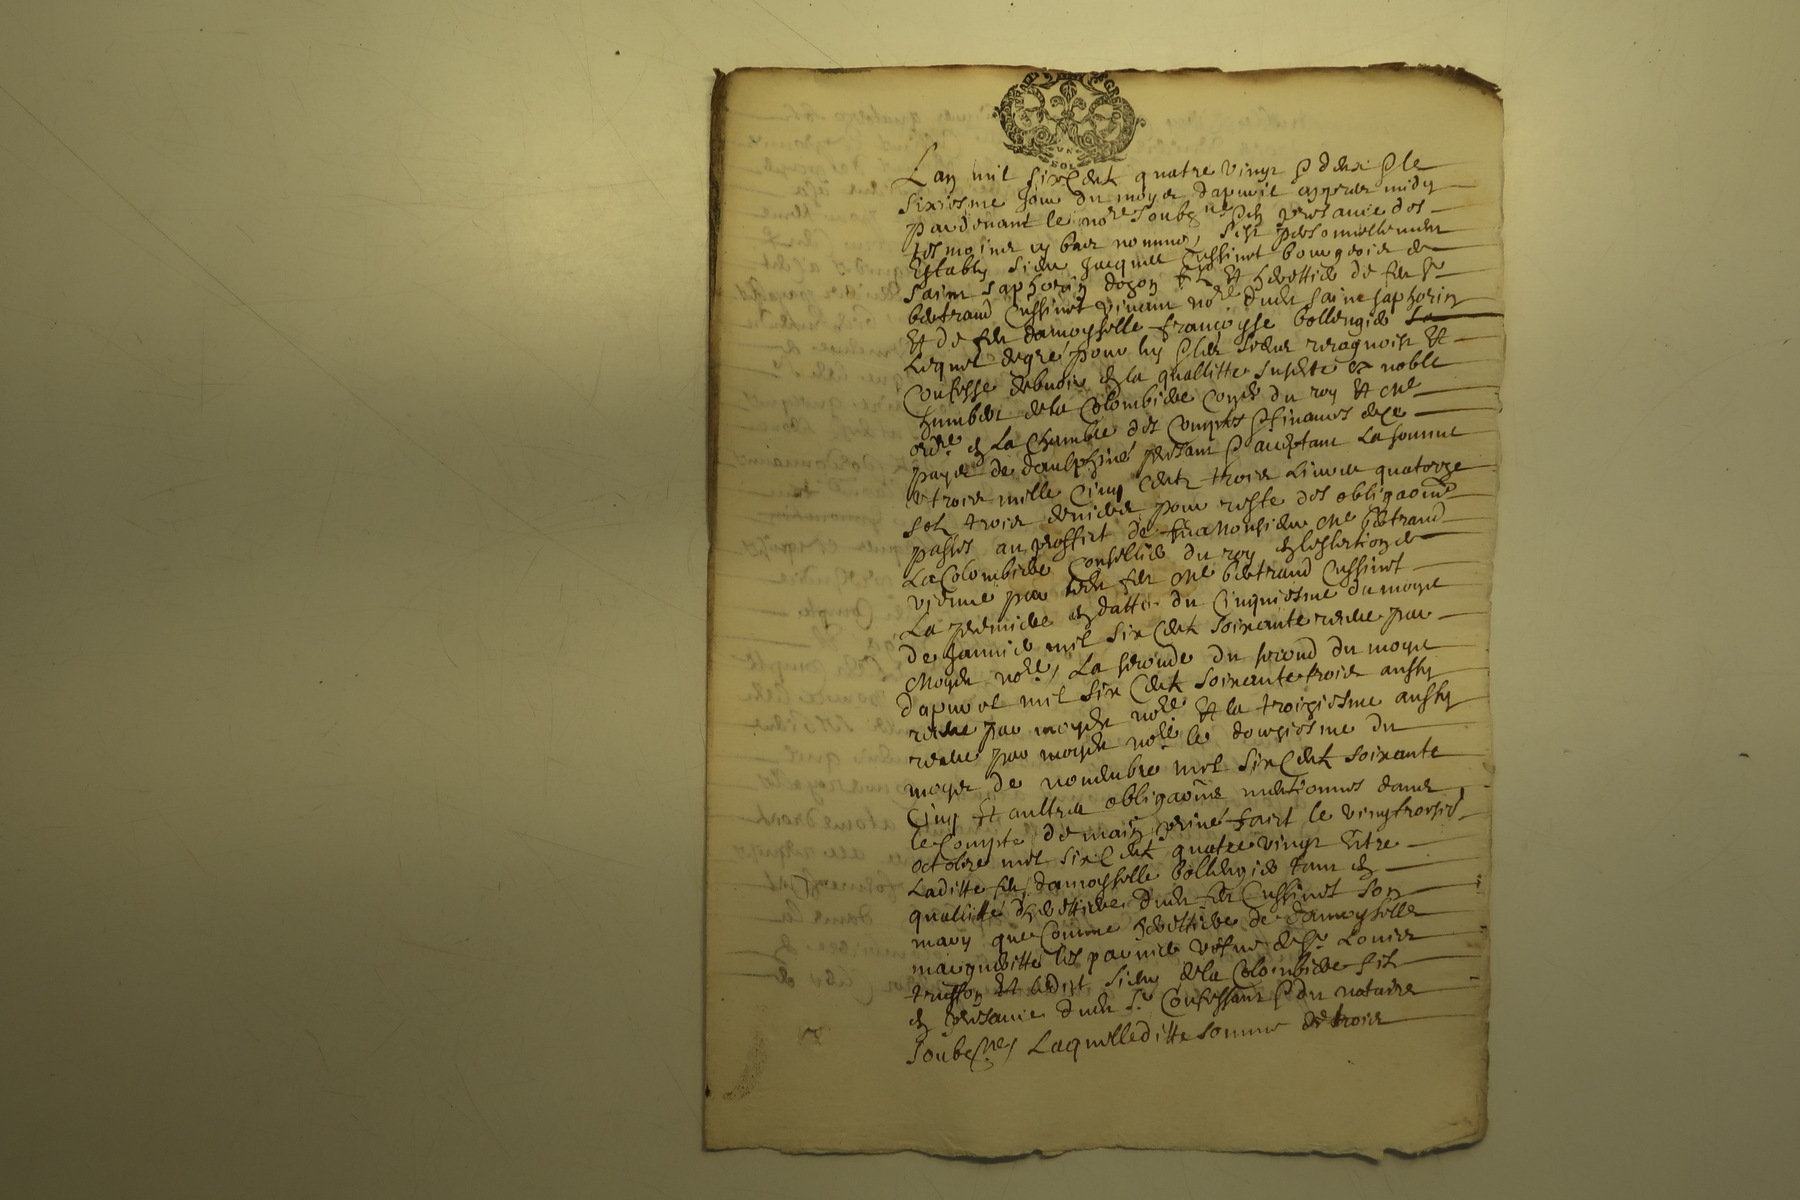 GENERALIT GRENOBLE
UN
SOL
Lan mil six Cent quatre vingt & deux & le
sixiesme Jour du moys dapvril appres midy
pardevant le no.re soubz.né & en presance des
tesmoins cy bas nommes, sest personnellement
estably sieur Jacques Cussinet bourgeois de
saint saphorin dozon filz & heretier de feu S.r
bertrand Cussinet vivant no.re dudit saint saphorin
Et de feu damoyselle françoyse bollengier
Lequel de gré pour luy & les siens recognoist &
Confesse debvoir en la quallitte susditte a noble
humbert de la Colombiere Con.er du roy & M.e
ord.re en La Chambre des Comptes & finances de ce
pays de daulphiné presant & aceptant La somme
de trois mille Cinq Cent trois Livres quatorze
solz trois deniers pour reste des obligaons
passes au proffit de feu Monsieur M.e bertrand
La Colombiere Conseillier du roy en leslection de
vienne par ledit feu M.e bertrand Cussinet
La premiere en datte du Cinquiesme du moys
de Janvier mil six Cent soixante receue par
Moydit no.re, La seconde du second du moys
dapvril mil six Cent soixante trois aussy
receue par moydit no.re & la troisiesme aussy
receue par moydit no.re le douziesme du
moys de novembre mil six Cent soixante
Cinq Et aultres obligaons mentionnes dans
le Compte de main privé faict le vingtroisies.
octobre mil six Cent quatre vingt Entre
Laditte feu damoyselle bollengier tant en
quallitté dheretiere dudit feu Cussinet son
mary que Comme heretiere de damoyselle
margueritte vefve de S.r Louis
Et ledit sieur de la Colombiere filz
en presance dudit S.r Confessant & du notaire
soubz.né, Laquelle ditte somme de trois